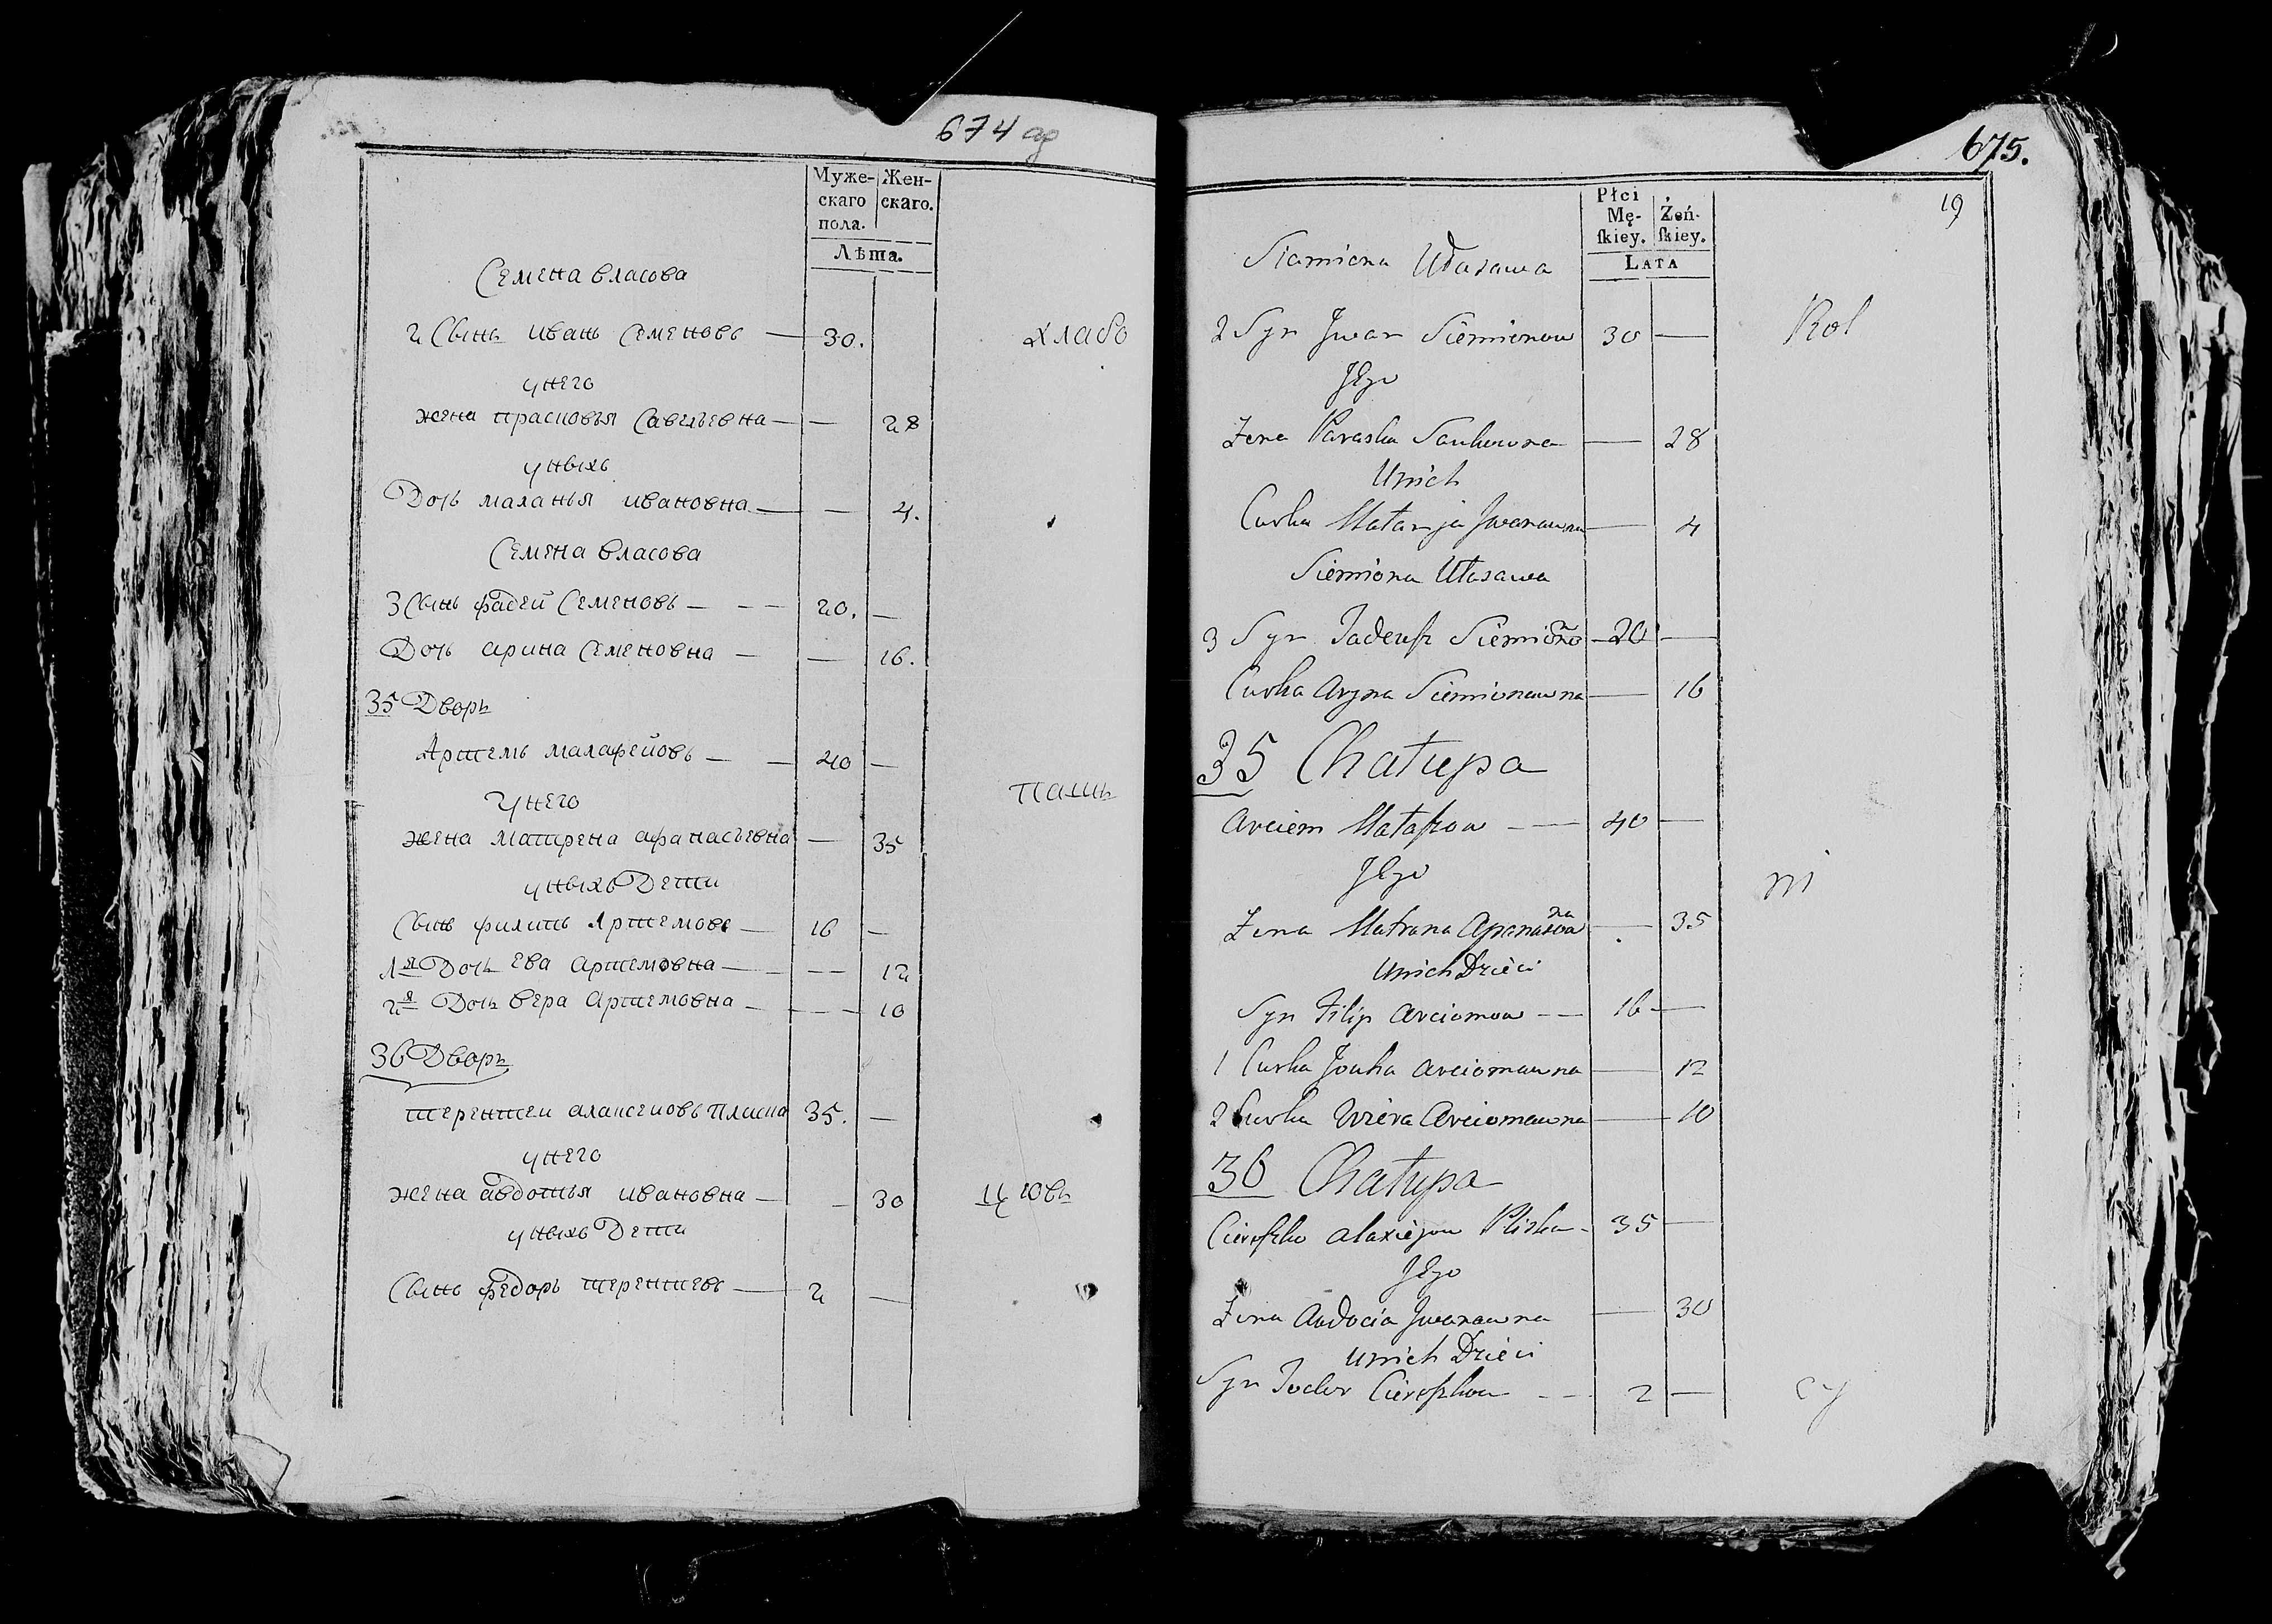 674 об
Муже- Жен-
скаго скаго.
пола.
Лѣта.
Семена власова
2 Сынъ иванъ Семеновъ — 30.
хлабо
у него
жена прасковья Савельевна — — 28
у ныхъ
Дочь маланья ивановна — — 4.
Семена власова
3 Сынъ фадей Семеновъ — — — 20. —
Дочь арина Семеновна — — 16.
35 Дворъ
Артемъ малафейовъ — — 40 —
пашъ
у него
жена матрена афанасьевна — 35
у ныхъ Дети
Сынъ филипъ Артемовъ — 16 —
1я Дочь Ева артемовна — — — 12
2я Дочь вера артемовна — — — — 10
36 Дворъ
терентеи алаксеиовъ плиска 35. —
у него
жена авдотья ивановна — — 30
цювъ
у ныхъ Дети
Сынъ федоръ терентиевъ — 2 —
675.
19
Płci
Mę- Żeń-
skiey. skiey.
LATA
Siamiona Ułasawa
2 Syn Jwan Siemionow 30 —
Rol
Jego
Żena Paraska Saukowna — 28
Unich
Curka Małanja Jwanawna — 4
Siemiona Ułasawa
3 Syn Tadeusz Siemiono — 20 —
Curka Aryna Siemionawna — 16
35 Chałupa
Arciem Małaszow — — 40 —
Jego
ni
Żena Matrona Apanasowa — 35
na
Unich Dzieci
Syn Filip Arciomow — — 16 —
1 Curka Jouka Arciomawna — 12
2 Curka Wiera Arciomawna — 10
36 Chałupa
Cieroszko Alaxiejow Pliska — 35 —
Jego
Żena Audocia Jwanawna — 30
Unich Dzieci
Syn Fiodor Cieroszkow — — 2 —
cy